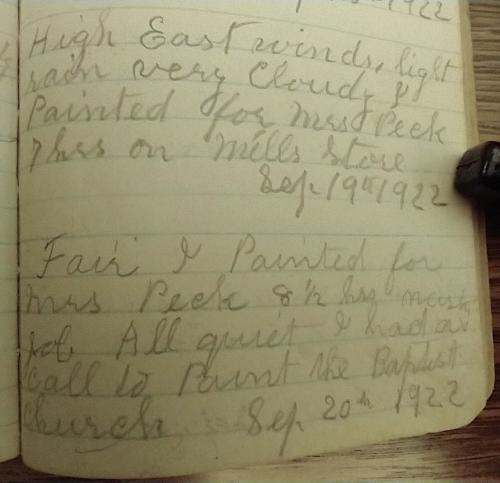 1922
High East winds, light
rain very Cloudy I
Painted for Mrs Peck
7 hrs on Mills Store
Sep. 19th 1922
Fair I Painted for
Mrs Peck 8 1/2 hrs
job All quiet I had a
call to Paint the Baptist
Church Sep 20th 1922